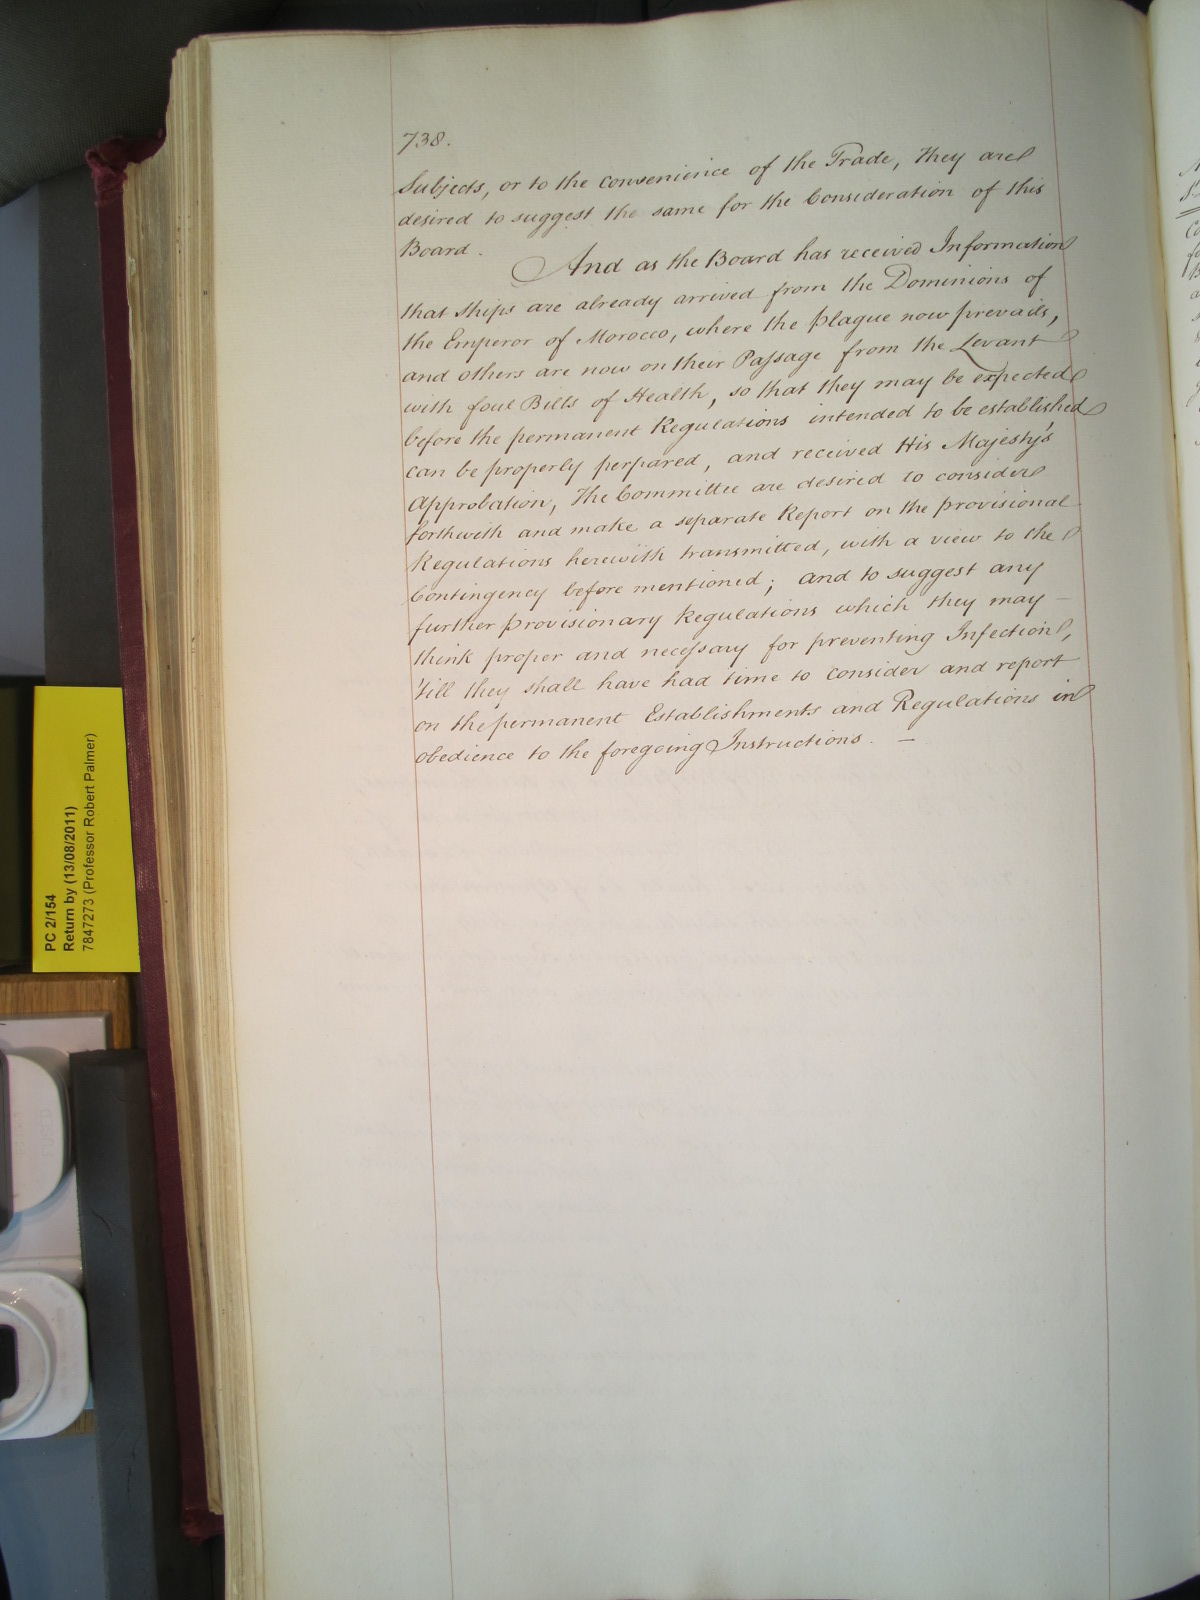 738.
Subjects, or to the convenience of the Trade, they are
desired to suggest the same for the Consideration of this
Board.
And as the Board has received Information
that Ships are already arrived from the Dominions of
the Emperor of Morocco, where the plague now prevails,
and others are now on their Passage from the Levant
with foul Bills of Health, so that they may be expected
before the permanent Regulations intended to be established
can be properly perpared, and received His Majesty's
Approbation, The Committee are desired to consider
forthwith and make a separate Report on the provisional
Regulations herewith transmitted, with a view to the
Contingency before mentioned; and to suggest any
further provisionary Regulations which they may —
think proper and necessary for preventing Infection,
'till they shall have had time to consider and report
on the permanent Establishments and Regulations in
obedience to the foregoing Instructions. —
PC 2/154
Return by (13/08/2011)
7847273 (Professor Robert Palmer)